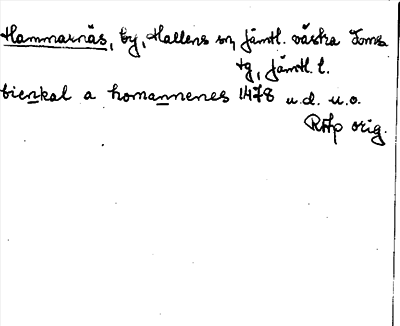 Hammarnäs, by, Hallens sn, Jämtl. västra doms
tg, Jämtl. l.
bienkal a homannenes 1478 u.d. u.o.
RAp orig.